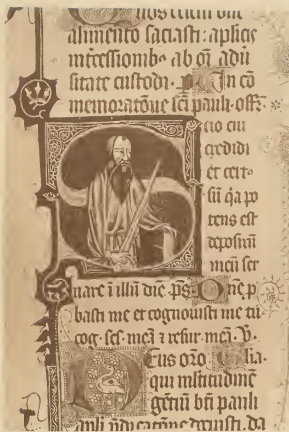 alimento saciasti: aplicis
intcessionibꝫ ab oi̅ adū
sitate custodi. In cō
memoratōne sc̄i pauli. offꝫ.
Scio cui
credidi
et cert
sū qa po
tens est
depositū
meū ser
uare ī illū diē. p̄s. Dn̄e p
basti me et cognouisti me tu
cog. ses. meā ⁊ resur. meā. V.
Deus oro Glīa.
qui mltitudinē
gētiū bt̄i pauli